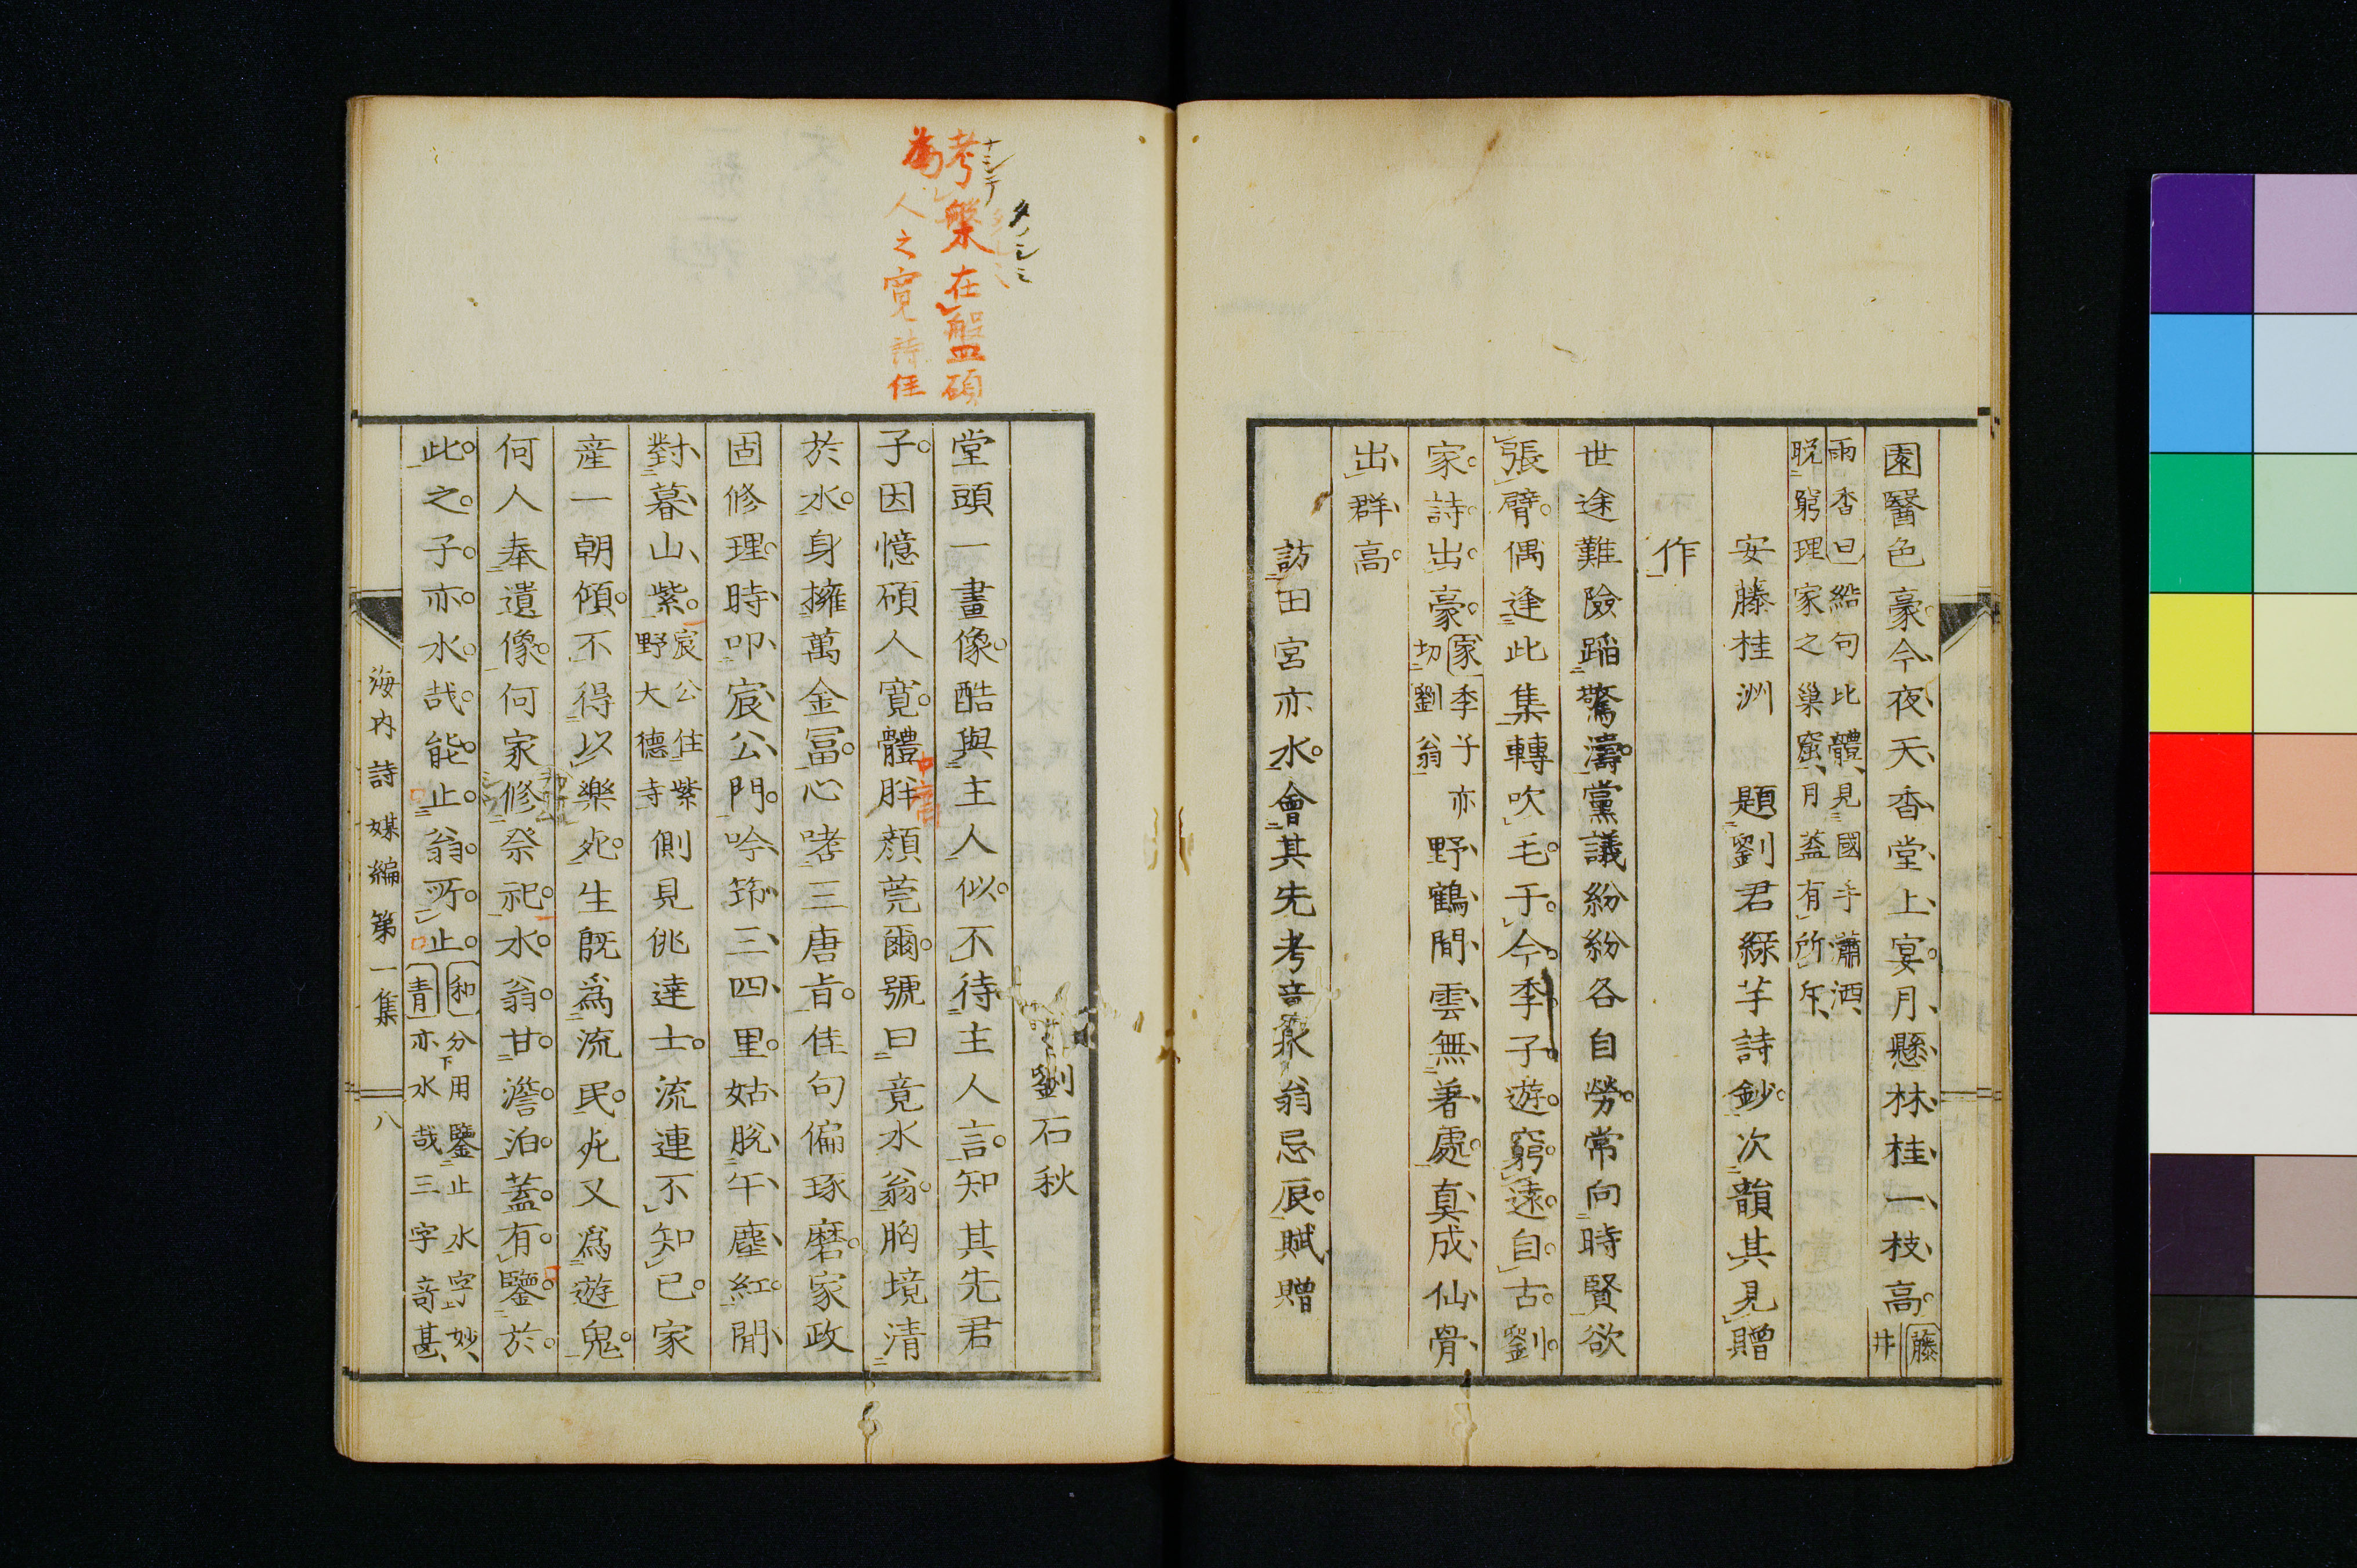 園醫色豪今夜天香堂上宴月懸林桂一枝高
藤
井
雨香曰給句比體見國手瀟洒
脱窮理家之巢窟月蓋有所斥
安藤桂洲 題劉君綠芋詩鈔次韻其見贈
作
世途難險蹈驚濤黨議紛紛各自勞常向時賢欲
張臂偶逢此集轉吹毛于今季子遊窮遠自古劉
家詩出豪
家季子亦
切劉翁
野鶴閒雲無著處真成仙骨
出群高
訪田宮亦水會其先考翁忌辰賦贈
劉石秋
堂頭一畫像酷與主人似不待主人言知其先君
子因憶碩人寬體胖顏莞爾號曰竟水翁胸境清
於水身擁萬金冨心啫三唐旨佳句偏琢磨家政
固修理時叩宸公門吟笻三四里姑脫午塵紅閒
對暮山紫
宸公住紫
野大德寺
側見佻達士流連不知已家
産一朝傾不得以樂死生既爲流民死又爲遊鬼
何人奉遺像何家修祭祀水翁甘澹泊蓋有鑒於
此之子亦水哉能止翁所止
和分用鑒止水字妙
青亦水哉三字奇甚
海内詩媒編第一集
八
考槃在盤碩
為人之寬詩佳